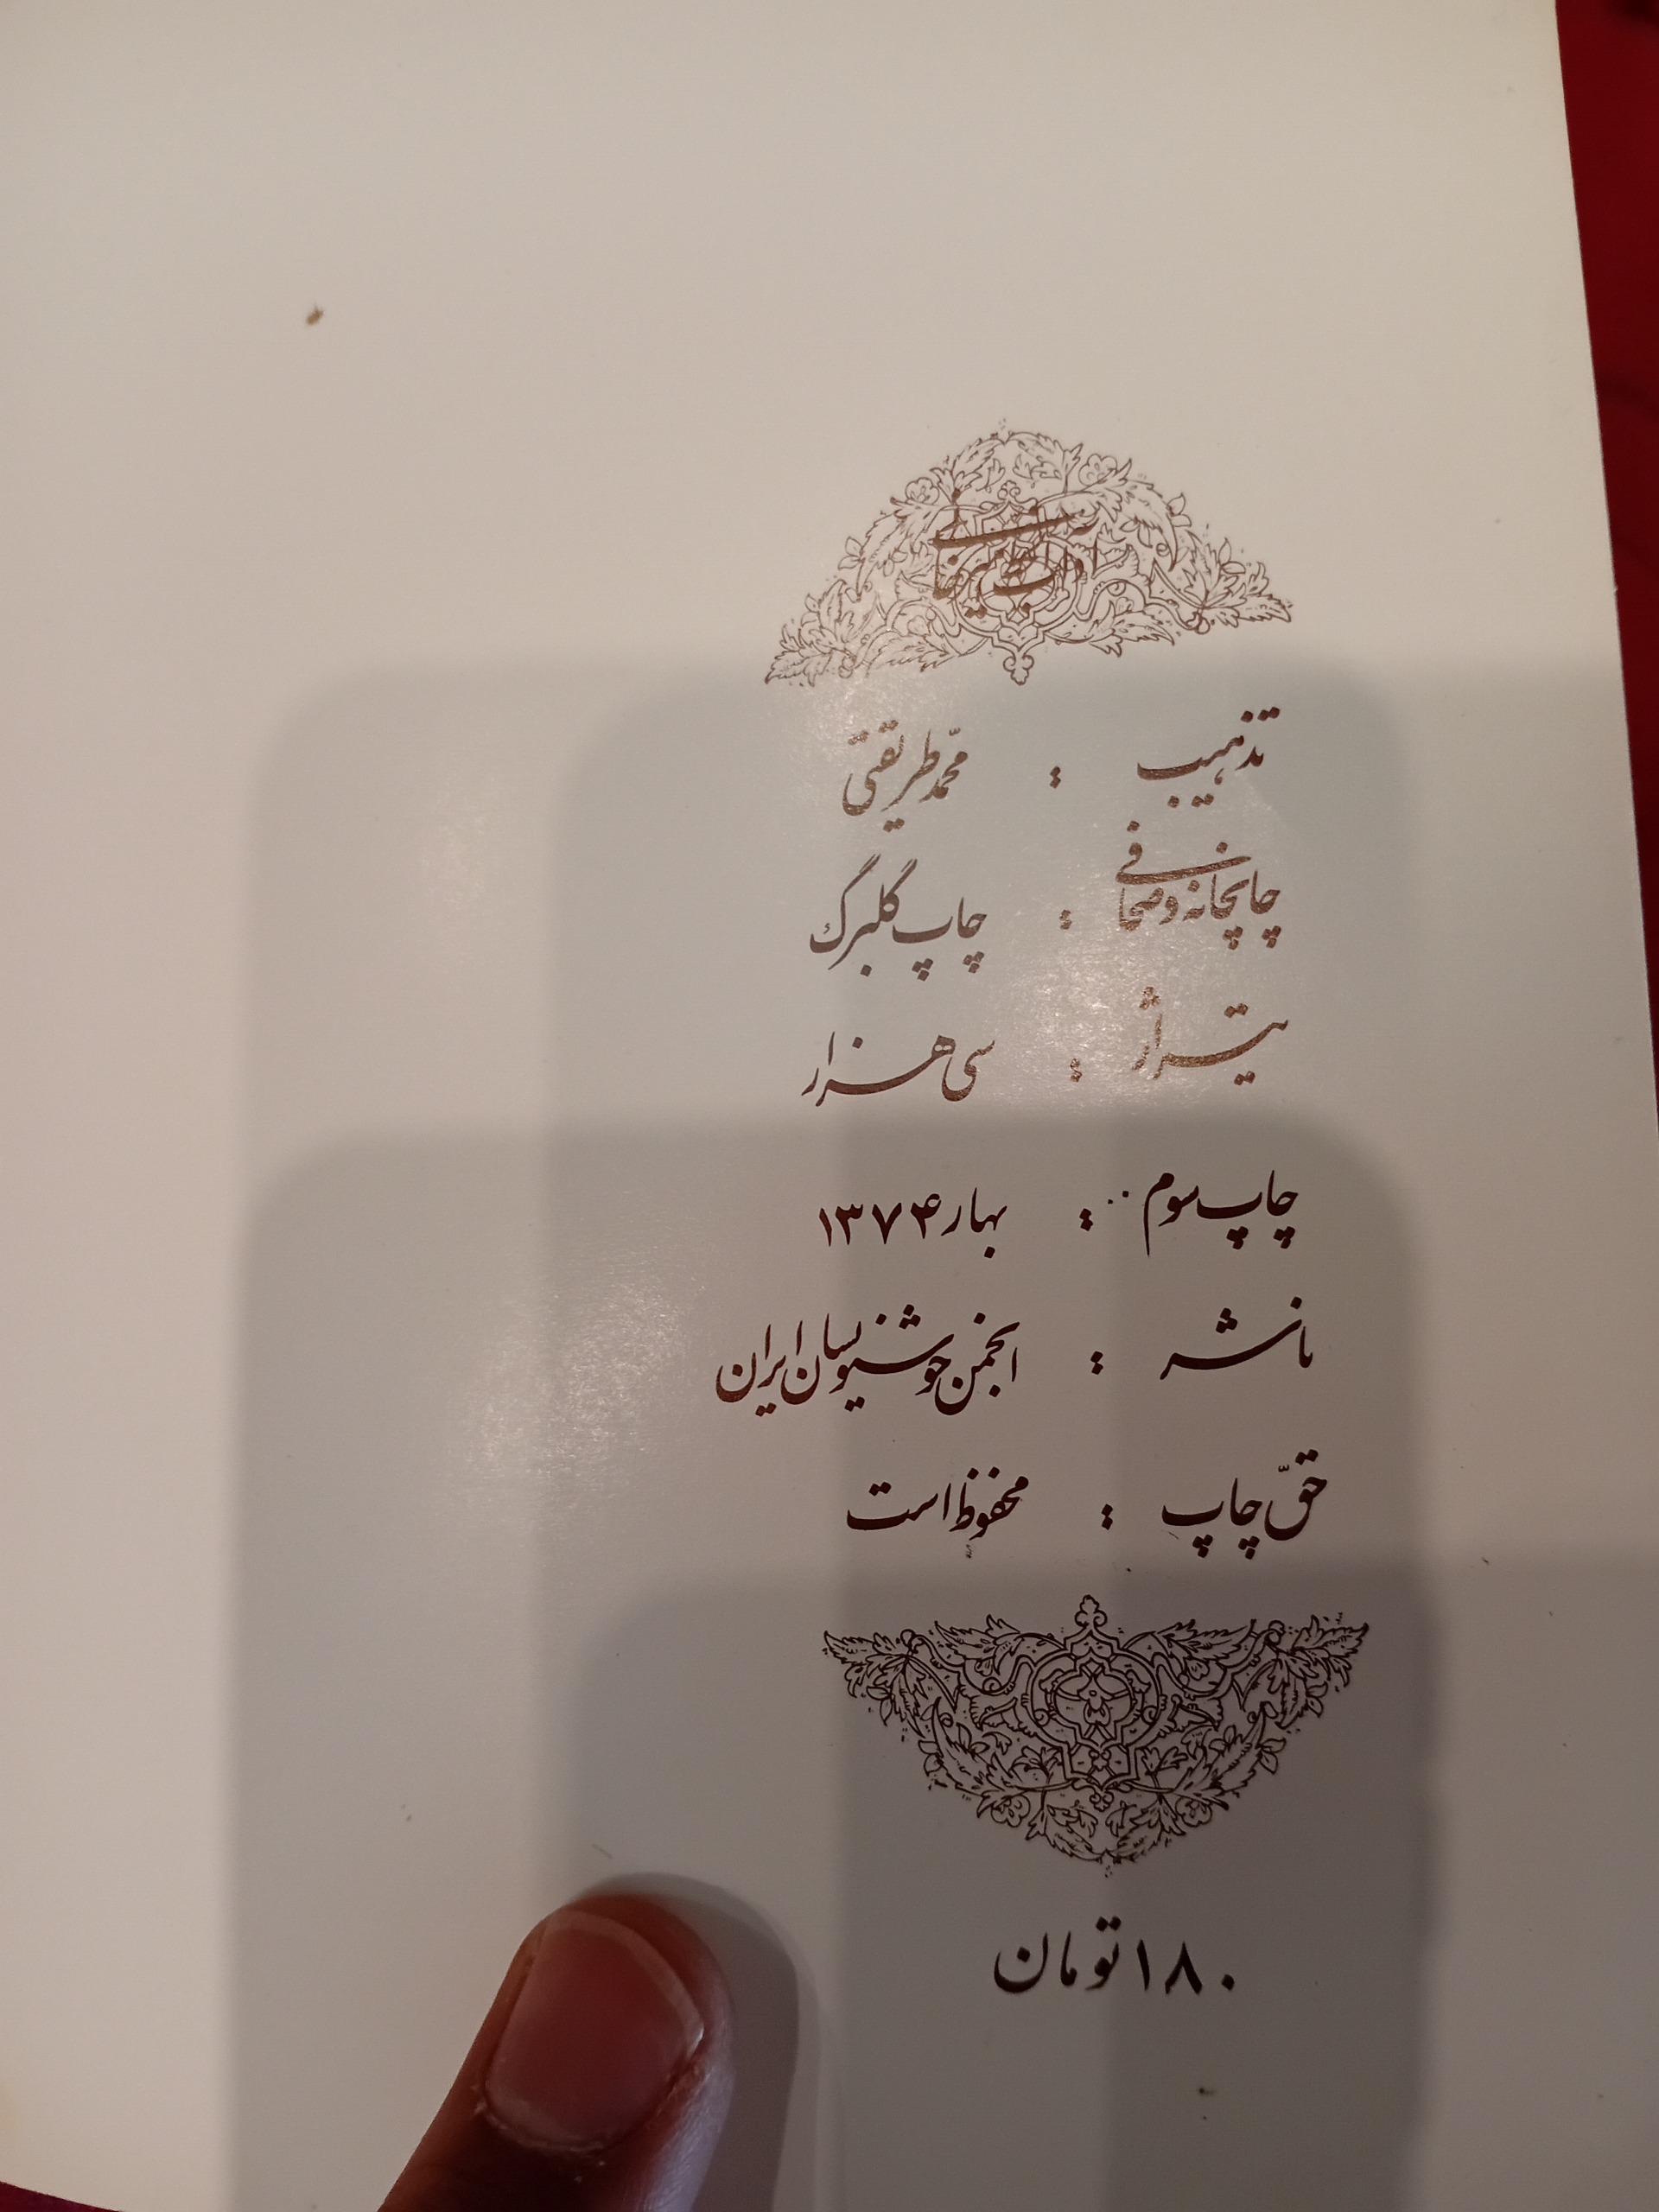 تذهیب : محمّد طریقتی
چاپخانه و صحافی : چاپ گلبرگ
تیتراژ : سی هزار
چاپ سوم : بهار ۱۳۷۴
ناشر : انجمن خوشنویسان ایران
حقّ چاپ : محفوظ است
۱۸۰ تومان